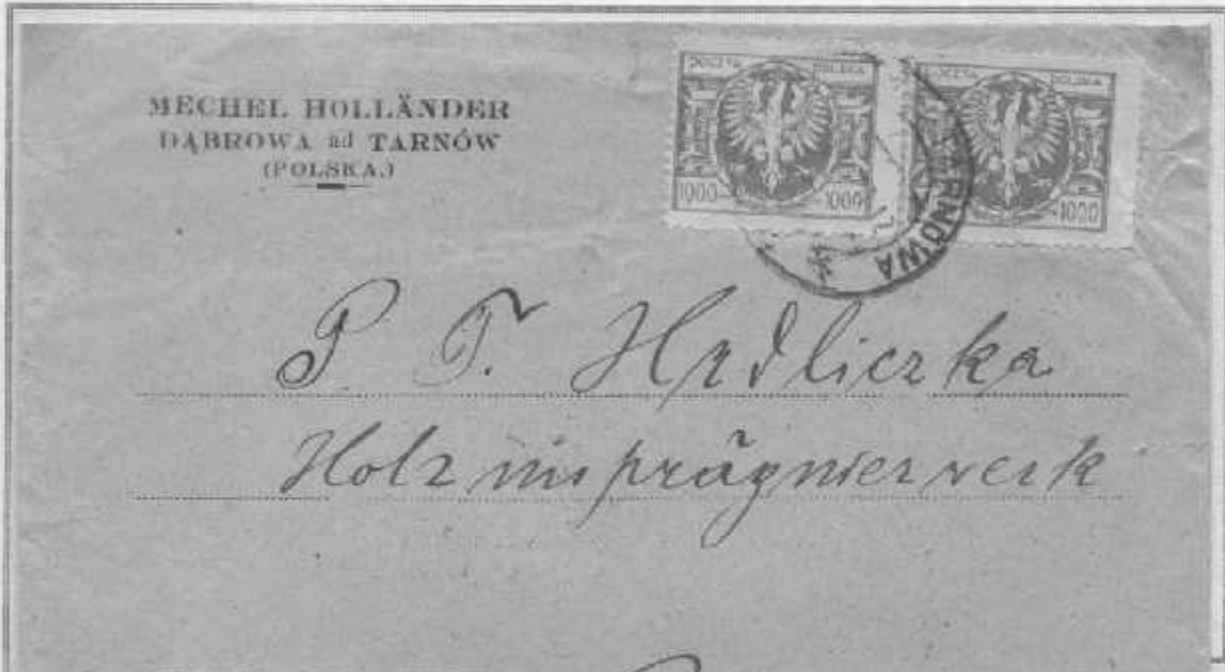 MECHEL HOLLÄNDER
DĄBROWA ad TARNÓW
(POLSKA.)
POCZTA POLSKA
1000 1000
POCZTA POLSKA
1000
TARNOWA
P. T. Hrdliczka
Holzimprägnierwerk